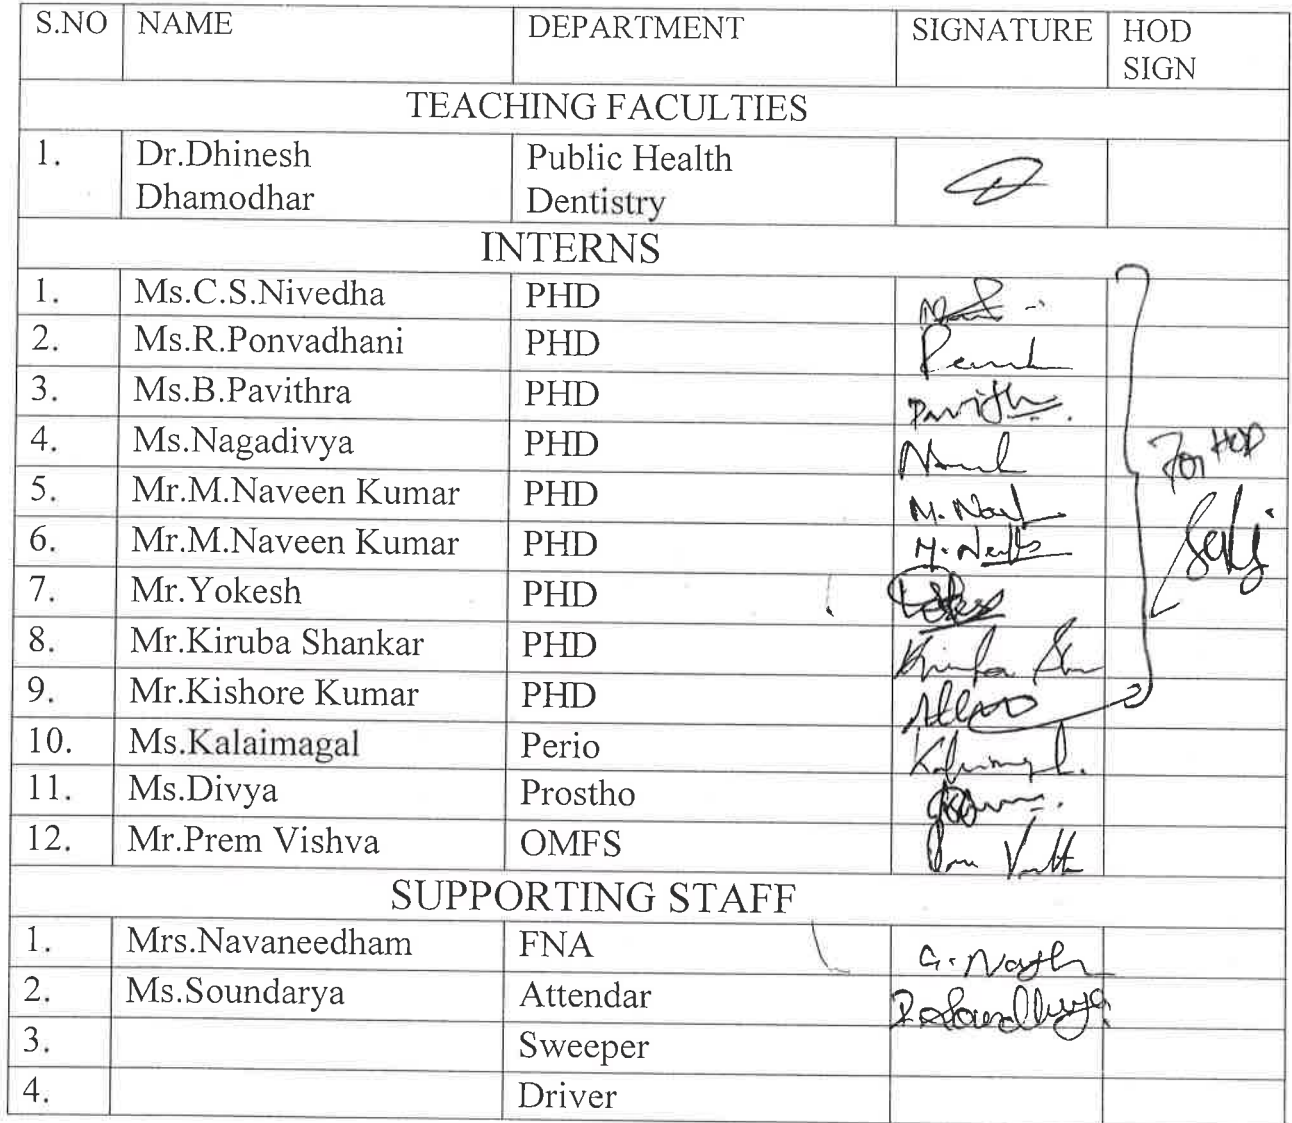 S.NO NAME DEPARTMENT SIGNATURE HOD
SIGN
TEACHING FACULTIES
1. Dr.Dhinesh Public Health
Dhamodhar Dentistry
INTERNS
1. Ms.C.S.Nivedha PHD
2. Ms.R.Ponvadhani PHD
3. Ms.B.Pavithra PHD
4. Ms.Nagadivya PHD
For HOD
5. Mr.M.Naveen Kumar PHD
6. Mr.M.Naveen Kumar PHD
7. Mr.Yokesh PHD
8. Mr.Kiruba Shankar PHD
9. Mr.Kishore Kumar PHD
10. Ms.Kalaimagal Perio
11. Ms.Divya Prostho
12. Mr.Prem Vishva OMFS
SUPPORTING STAFF
1. Mrs.Navaneedham FNA
2. Ms.Soundarya Attendar
3. Sweeper
4. Driver